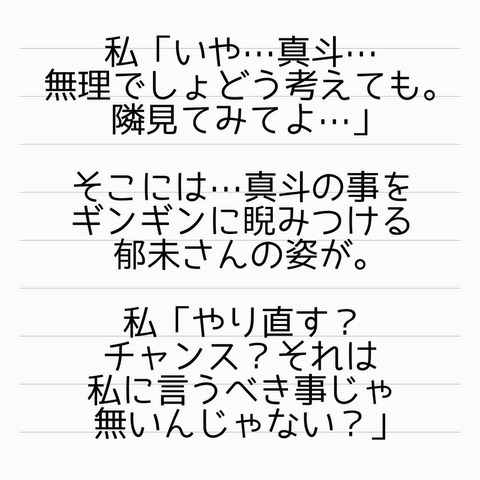 私「いや…真斗…
無理でしょどう考えても。
隣見てみてよ…」
そこには…真斗の事を
ギンギンに睨みつける
郁未さんの姿が。
私「やり直す？
チャンス？それは
私に言うべき事じゃ
無いんじゃない？」